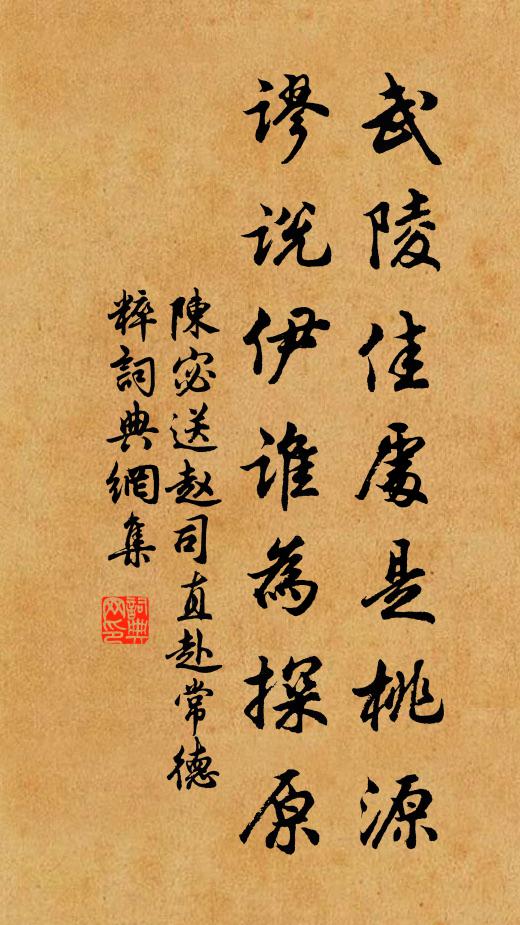 武陵佳處是桃源
谬说伊谁為探原
陳宓送赵司直赴常德
粹詞典網集
詞典网印